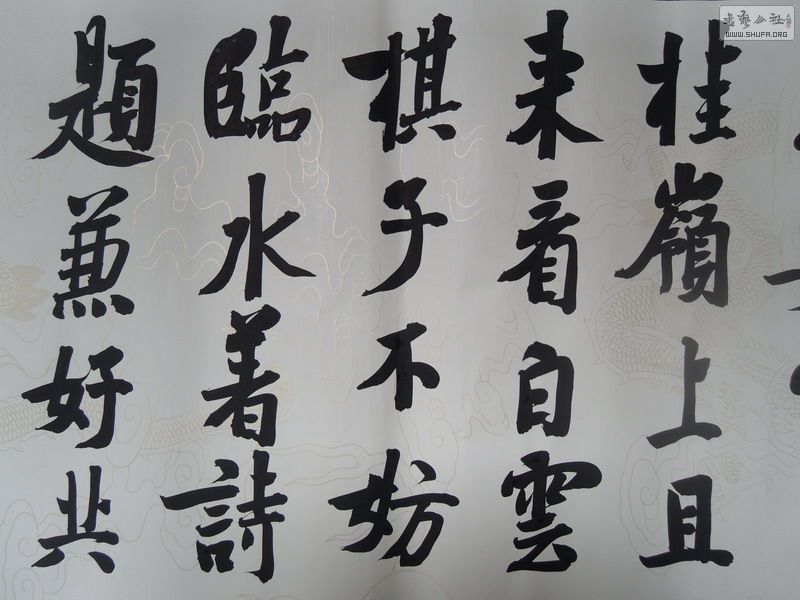 桂嶺上且
来看白雲
棋子不妨
臨水着詩
題兼好共
书艺公社
WWW.SHUFA.ORG